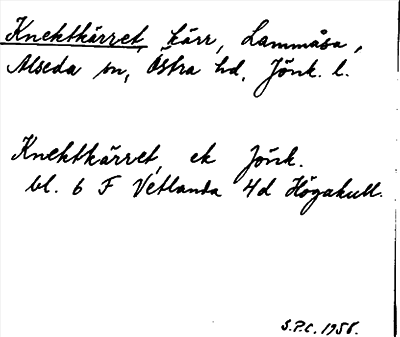 Knektkärret, kärr, Lammåsa,
Alseda sn, Östra hd, Jönk. l.
Knektkärret, ek Jönk.
bl. 6 F Vetlanda 4d Högakull.
S.P.C. 1958.